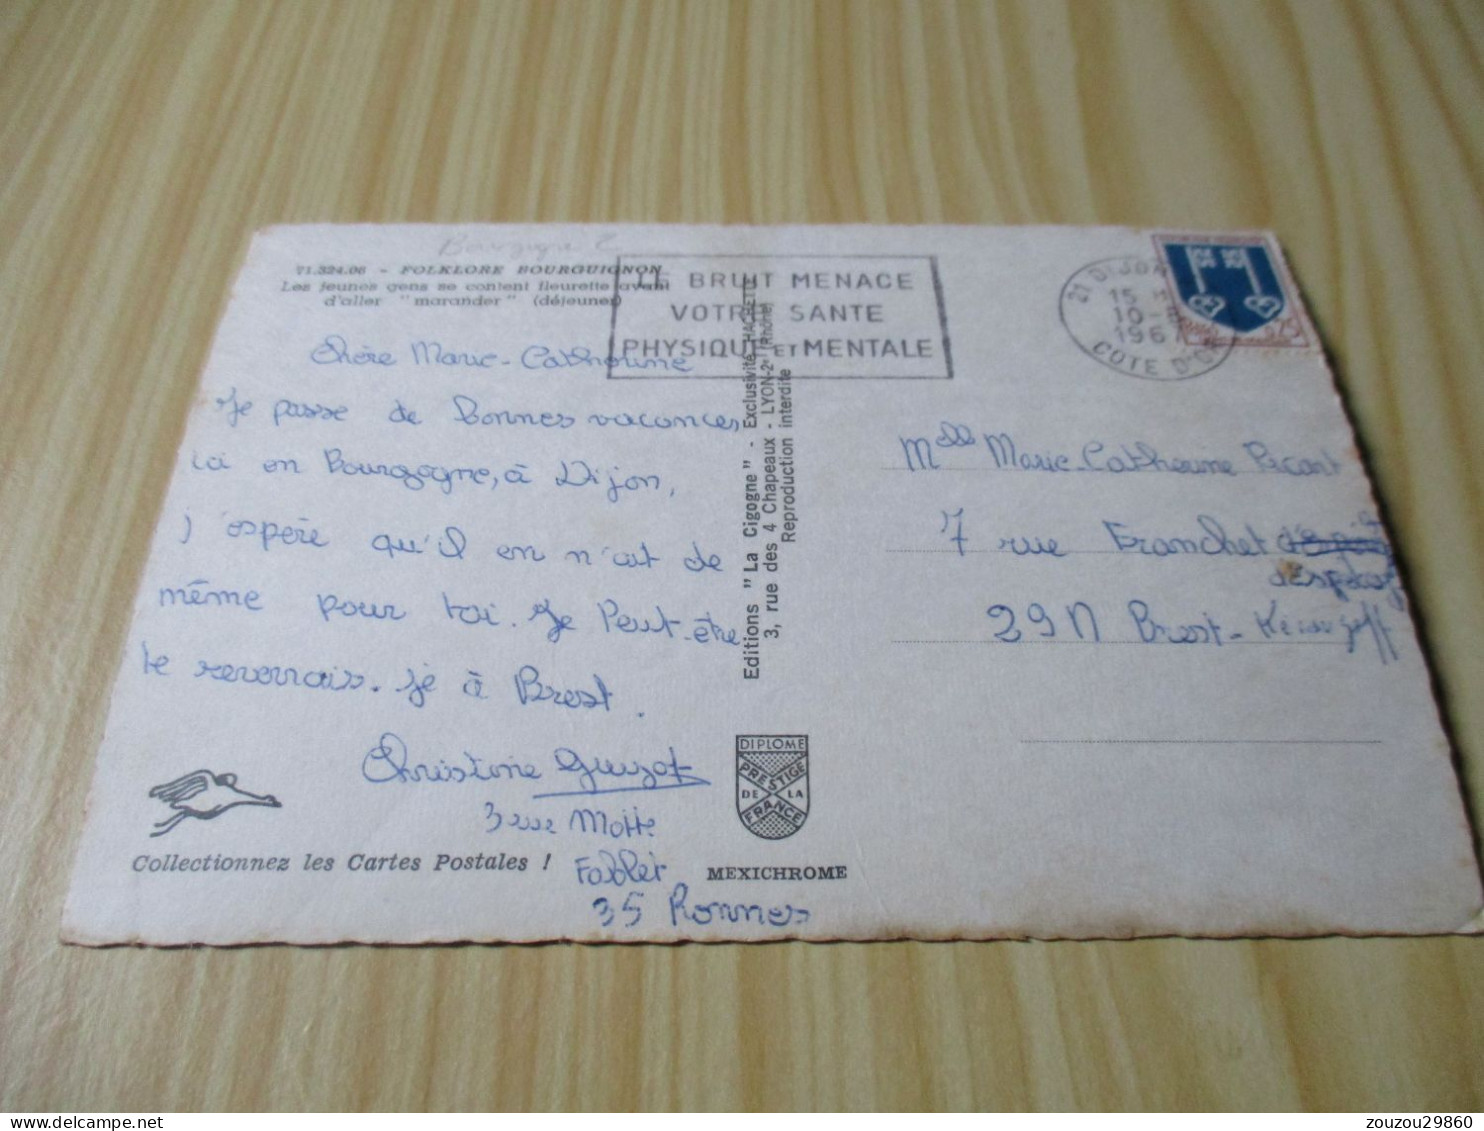 Bourgogne 2
71.324.06 - FOLKLORE BOURGUIGNON
Les jeunes gens se content fleurette avant
d'aller "marander" (déjeuner)
LE BRUIT MENACE
VOTRE SANTE
PHYSIQUE ET MENTALE
21 DIJON
15 H
10 - 8
196
COTE D'OR
0,25
Chère Marie-Catherine
Je passe de bonnes vacances
ici en Bourgogne, à Dijon,
j'espère qu'il en n'ait de
même pour toi. Je Peut-être
te reverrais-je à Brest.
Christine Guizot
3 rue Motte
Fablet
35 Rennes
Editions "La Cigogne" - Exclusivité HACHETTE
3, rue des 4 Chapeaux - LYON-2e (Rhône)
Reproduction interdite
Melle Marie-Catherine Picart
7 rue Franchet
d'Espérey
29N Brest-
DIPLOME
PRESTIGE
DE LA
FRANCE
Collectionnez les Cartes Postales !
MEXICHROME
zouzou29860